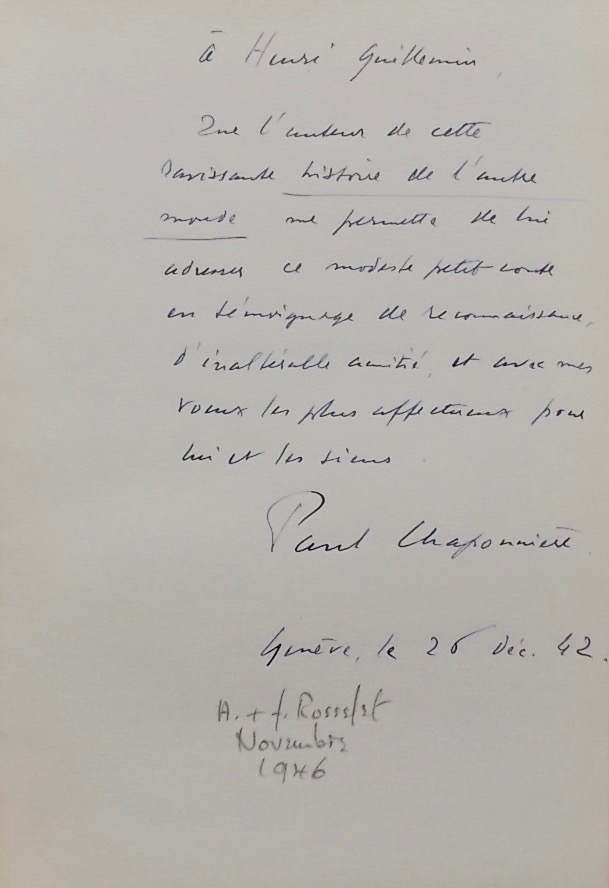 à Henri Guillemin,
Que l'auteur de cette
ravissante histoire de l'autre
monde me permette de lui
adresser ce modeste petit conte
en témoignage de reconnaissance,
d'inaltérable amitié, et avec mes
voeux les plus affectueux pour
lui et les siens
Paul Chaponnière
Genève, le 26 Déc. 42.
A. + f.
Novembre
1946